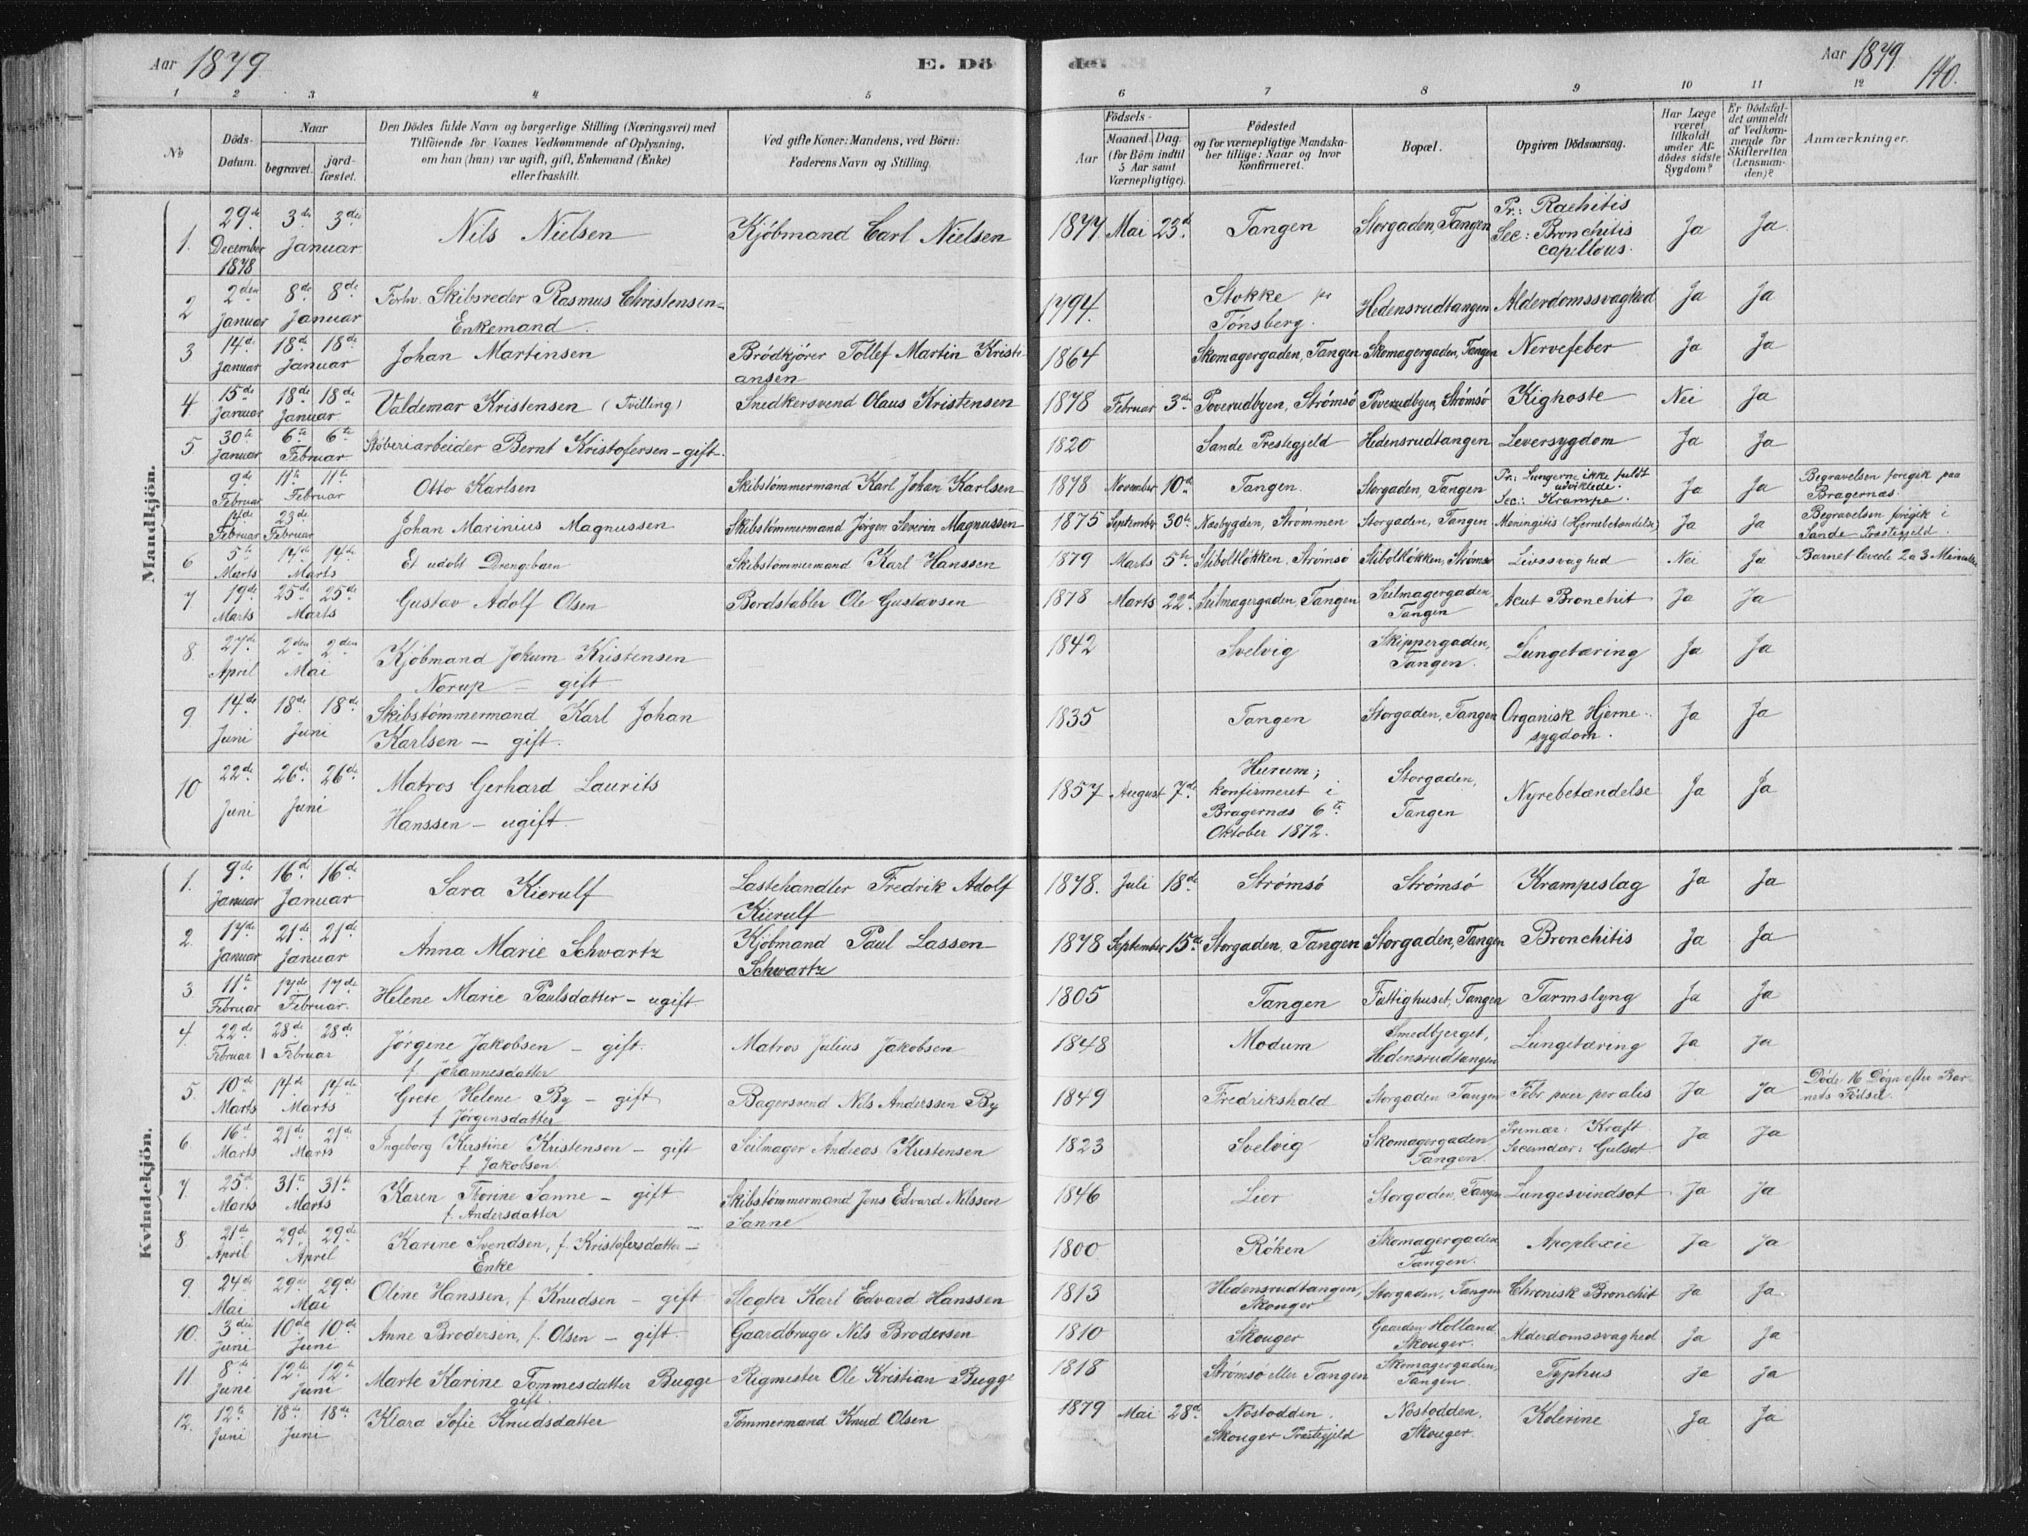 Aar 1879 E. Dö de. Aar 1879. 140.
1 2 3 4 5 6 7 8 9 10 11 12
№ Döds-Datum. Naar begravet. jordfæstet. Den Dödes fulde Navn og borgerlige Stilling (Næringsvei) med Tilföiende for Voxnes Vedkommende af Oplysning, om han (hun) var ugift, gift, Enkemand (Enke) eller fraskilt. Ved gifte Koner: Mandens, ved Börn: Faderens Navn og Stilling. Aar Födsels- Maaned. Dag. (for Börn indtil 5 Aar samt Værnepligtige). Födested og for værnepligtige Mandskaber tillige: Naar og hvor Konfirmeret. Bopæl. Opgiven Dödsaarsag. Har Læge været tilkaldt under Afdödes sidste Sygdom? Er Dödsfaldet anmeldt af Vedkommende for Skifteretten (Lensmanden)? Anmærkninger.
Mandkjön.
1. 29de December 1878 3de 3die Januar Nils Nielsen Kjöbmand Carl Nielsen 1877 Mai 23d. Tangen Storgaden, Tangen Pr.: Rachitis Sec: Bronchitis capillous. Ja Ja
2 2den Januar 8de 8de Januar Forhv. Skibsreder Rasmus Christensen - Enkemand. 1794. Stokke pr Tönsberg. Hedensrudtangen Alderdomssvaghed Ja Ja
3 14de Januar 18de 18de Januar Johan Martinsen Brödkjörer Tollef Martin Kristiansen 1864 Skomagergaden, Tangen Skomagergaden, Tangen Nervefeber Ja Ja
4 15de Januar 18de 18de Januar Valdemar Kristensen (Tvilling) Snedkersvend Olaus Kristensen 1878 Februar 3de Poverudbyen, Strømsø Poverudbyen, Strømsø Kighoste Nei Ja
5 30te Januar 6te 6te Februar Støberiarbeider Bernt Kristofersen - gift. 1820 Sande Prestegjeld Hedensrudtangen Leversygdom Ja Ja
9de Februar 11te 11te Februar Otto Karlsen Skibstömmermand Karl Johan Karlsen 1878 November 10de Tangen. Storgaden, Tangen Pr.: Lungerne ikke fuldt udviklede. Sec.: Krampe. Ja Ja Begravelsen foregik paa Bragernæs.
14de Februar 23de Februar Johan Marinius Magnussen Skibstömmermand Jörgen Severin Magnussen 1875 September 30te Næsbygden, Strømmen Storgaden, Tangen Meningitis (Hjernebetændelse) Ja Ja Begravelsen foregik i Sande Præstegjeld.
6 5te Marts 14de 14de Marts Et udöbt Drengebarn Skibstömmermand Karl Hanssen 1879 Marts 5te Stiboltløkken, Strømsø Stiboltløkken, Strømsø Livssvaghed Nei Ja Barnet levede 2 a 3 Minutter
7 19de Marts 25de 25de Marts Gustav Adolf Olsen Bordstabler Ole Gustavsen 1878 Marts 22de Seilmagergaden, Tangen Seilmagergaden Tangen Acut Bronchit Ja Ja
8. 27de April 2den 2den Mai Kjöbmand Jokum Kristensen Norup - gift. 1842 Svelvig Skippergaden, Tangen. Lungetæring Ja Ja
9 14de Juni 18de 18de Juni Skibstömmermand Karl Johan Karlsen - gift. 1835 Tangen Storgaden, Tangen Organisk Hjernesygdom. Ja Ja
10 22de Juni 26de 26de Juni Matros Gerhard Laurits Hanssen - ugift. 1857 August 7de Hurum; konfirmeret i Bragernæs 6te Oktober 1872. Storgaden, Tangen Nyrebetændelse Ja Ja
Kvindekjön.
1. 9de Januar 16de 16de Januar Sara Kierulf Lastehandler Fredrik Adolf Kierulf 1878. Juli 18de Strømsø Strømsø Krampeslag Ja Ja
2. 17de Januar 21de 21de Januar Anna Marie Schwartz Kjöbmand Paul Lassen Schwartz 1878 September 15de Storgaden, Tangen Storgaden, Tangen Bronchitis Ja Ja
3. 11te Februar 17de 17de Februar. Helene Marie Paulsdatter - ugift 1805 Tangen Fattighuset, Tangen Tarmslyng Ja Ja
4. 22de Februar 28de 28de Februar Jörgine Jakobsen - gift. f. Johannesdatter Matros Julius Jakobsen 1848 Modum Smedbjerget, Hedensrudtangen Lungetæring Ja Ja
5. 10de Marts 14de 14de Marts Grete Helene By - gift f. Jörgensdatter Bagersvend Nils Anderssen By 1849 Fredrikshald Storgaden Tangen Febr. puer peralis Ja Ja Döde 16 Dögn efter Barnets Födsel.
6. 16de Marts 21de 21de Marts Ingeborg Kirstine Kristensen - gift f. Jakobsen Seilmager Andreas Kristensen 1823 Svelvig Skomagergaden Tangen. Primær: Kræft Secundær: Gulsot Ja Ja
7. 25de Marts 31te 31te Marts Karen Thorine Sanne - gift f. Andersdatter Skibstömmermand Jens Edvard Nilssen Sanne 1846 Lier Storgaden, Tangen Lungesvindsot Ja Ja
8. 21de April 29de 29de April Karine Svendsen, f. Kristofersdatter - Enke 1800 Röken Skomagergaden Tangen. Apoplexie Ja Ja
9. 24de Mai 29de 29de Mai Oline Hanssen, f. Knudsen - gift Slagter Karl Edvard Hanssen 1813 Hedensrudtangen, Skouger Storgaden, Tangen Chronisk Bronchit Ja Ja
10. 3die Juni 10de 10de Juni Anne Brodersen, f. Olsen - gift. Gaardbruger Nils Brodersen 1810 Skouger Gaarden Holland Skouger. Alderdomssvaghed Ja Ja
11. 8de Juni 12te 12te Juni Marte Karine Tommesdatter Bugge gift. Rigmester Ole Kristian Bugge 1818 Strømsø eller Tangen Skomagergaden, Tangen. Typhus Ja Ja
12. 12te Juni 18de 18de Juni Klara Sofie Knudsdatter Tömmermand Knud Olsen 1879 Mai 28de Nöstodden, Skouger Præstegjeld Nöstodden, Skouger. Kolerine Ja Ja